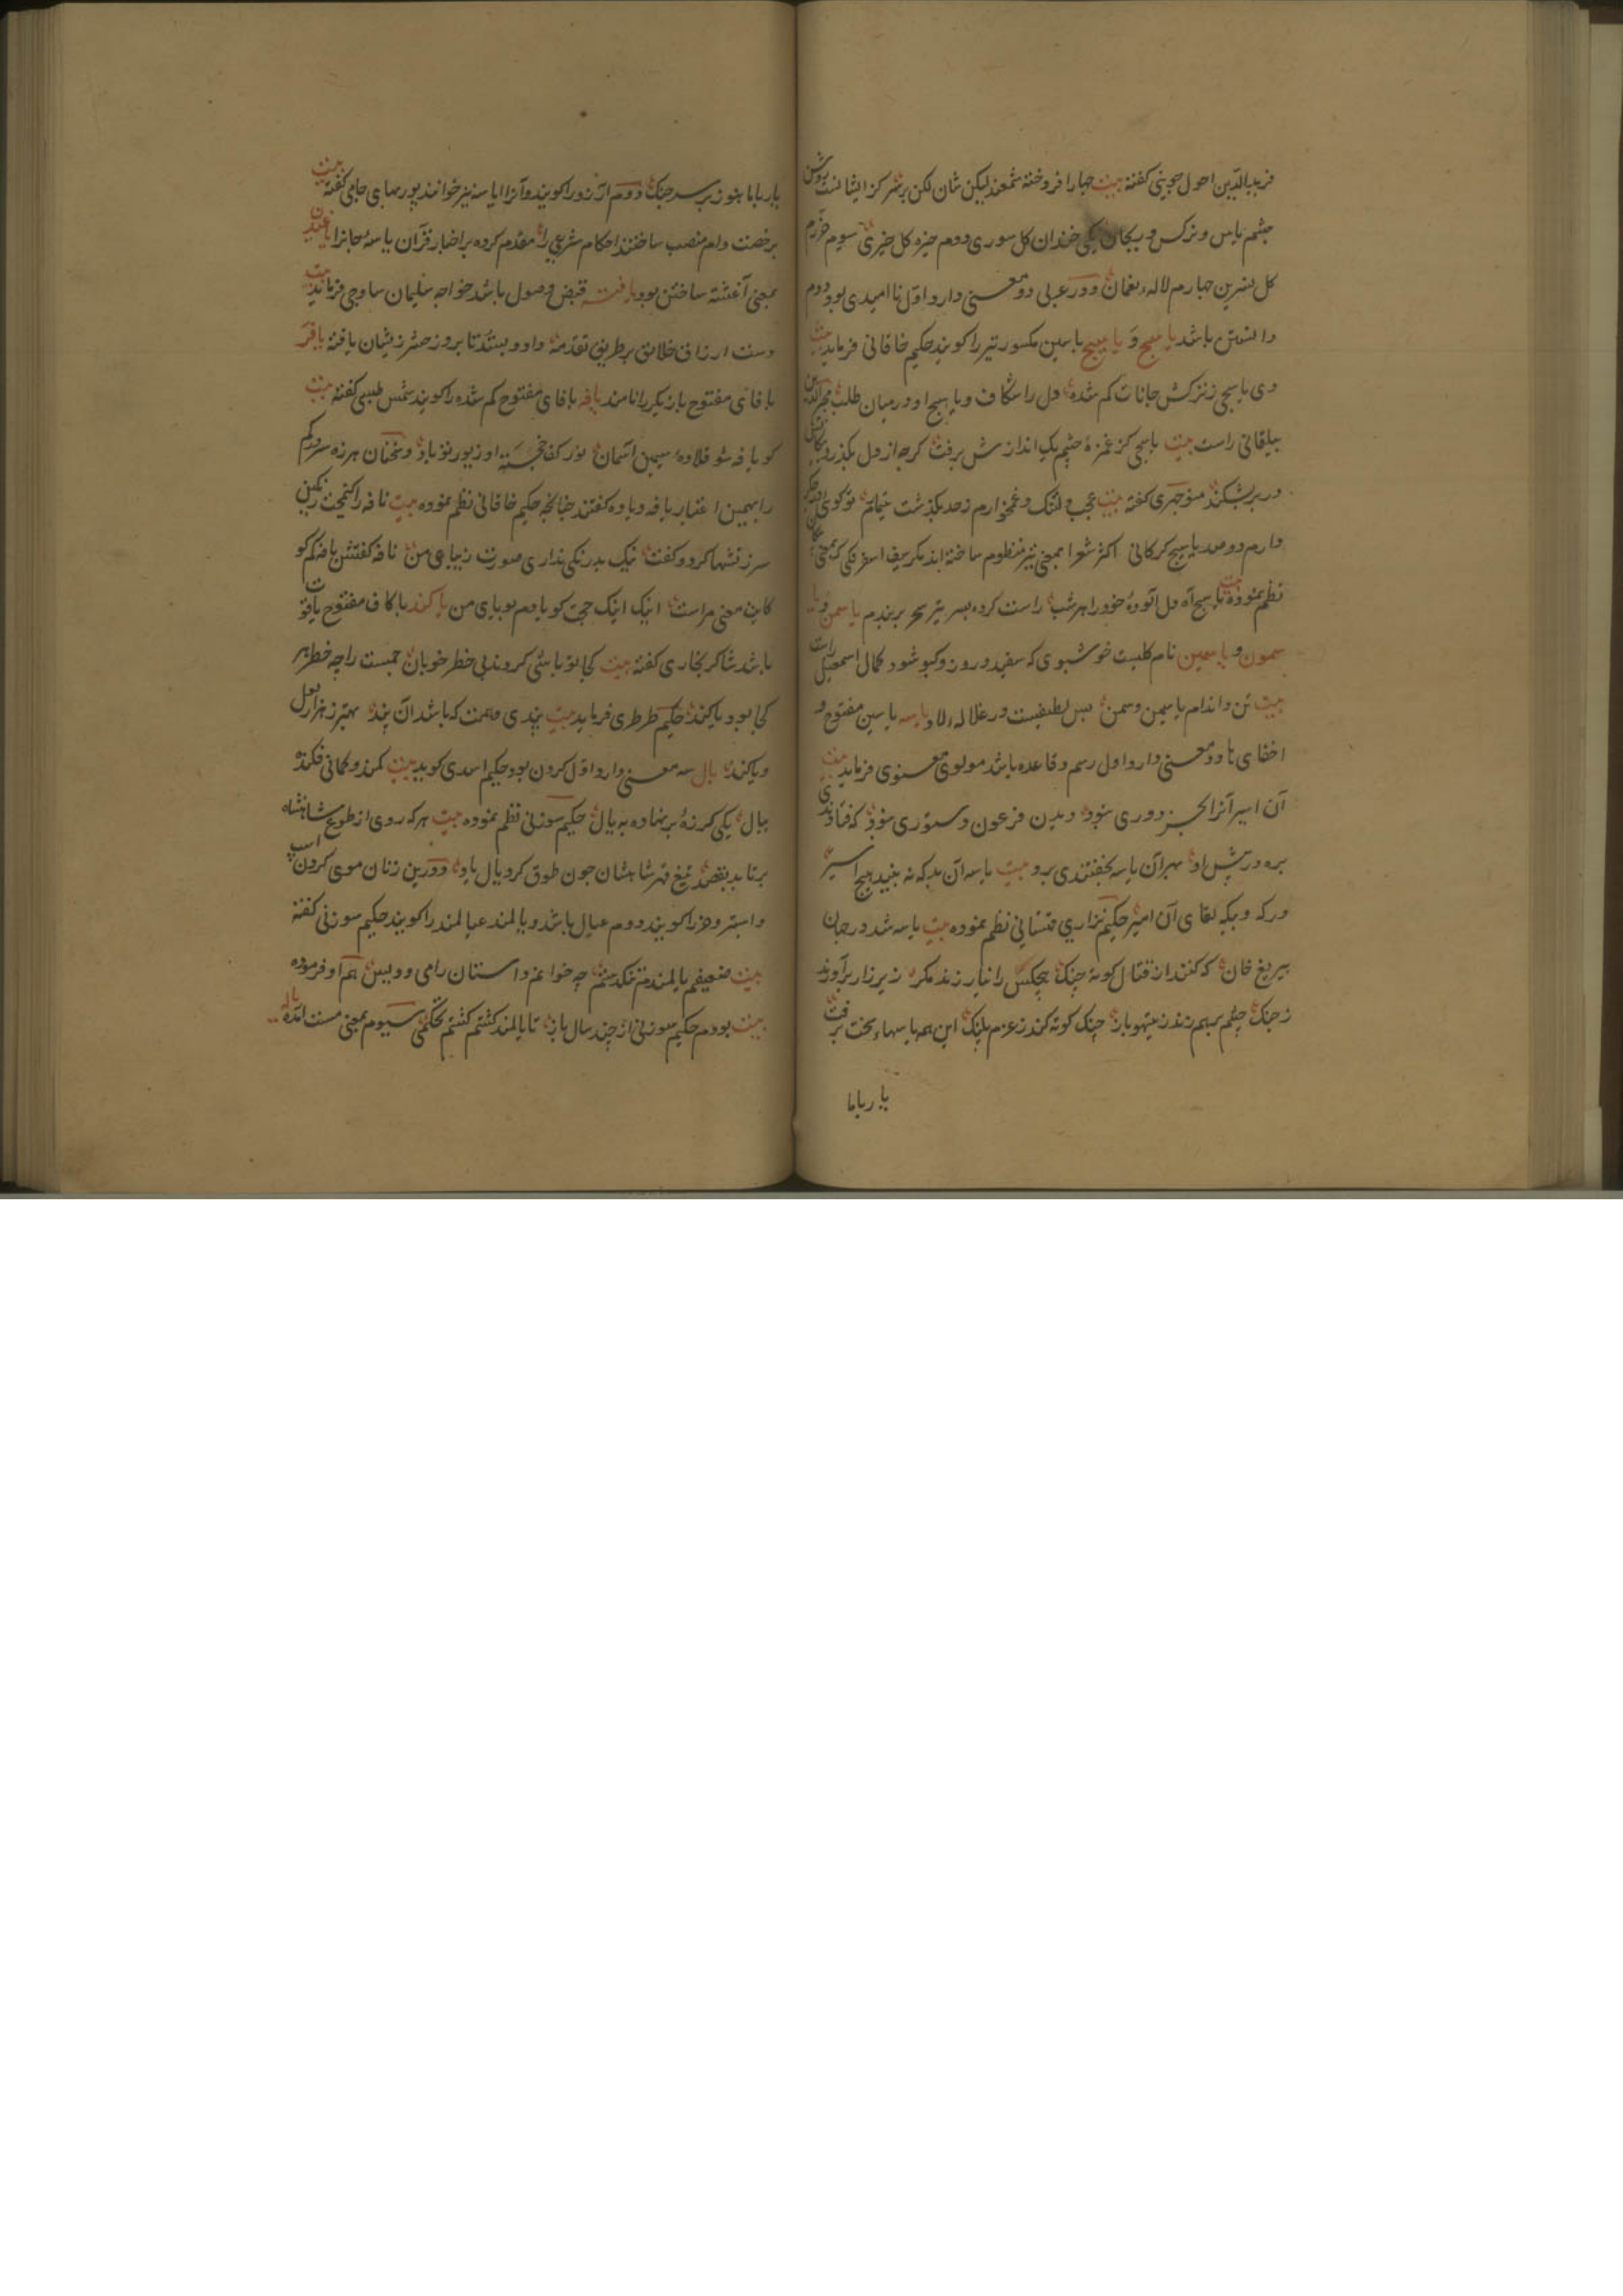 فریدالدین احول جوینی کفته بیت چهار افروخته شمعند لیکن شان لکن بر سر کز ایشانست روشن
چشم یاس و نرکس و ریحان یکی خندان کل سوری دوم خیره کل خیری سیوم خرم
کل نسرین چهارم لاله نعمان و در عربی دو معنی دارد اول ناامیدی بود دوم
دانستن باشد یاسج و یاسیج با سین مکسور تیر را کویند حکیم خاقانی فرماید بیت
دی یاسجی ز ترکش جانات کم شده دل را شکاف و یاسج او در میان طلب مجیرالدین
بیلقانی راست بیت یاسجی کز غمزه چشم یک اندازش برفت کرچه از دل بکذرد
در برشکند منوچهری کفته بیت عجب دلتنک و غمخوارم ز حد بکذشت تیمارم تو کوی
دارم دو صد یاسیج کرکانی اکثر شعرا بمعنی تیر منظوم ساخته اند مکر سیف اسفرنکی که بمعنی
نظم نموده بیت یاسج آه دل آلوده خود را هر شب راست کرده بسر تیر سحر بربندم یاسمن و یا
سمون و یاسمین نام کلیست خوشبوی که سفید و زرد و کبود شود کمال اسمعیل راست
بیت تن و اندام یاسمین و سمن بس لطیفست در غلاله لاد یاسه با سین مفتوح و
اخفای ها دو معنی دارد اول رسم و قاعده باشد مولوی معنوی فرماید بیت
آن اسیر آنرا بجز دوری نبود دیدن فرعون دستوری نبود که فتادندی
بره در پیش او بهر آن یاسه بخفتندی برو بیت یاسه آن بد که نه بیند هیچ اسیر
در که و بیکه لقای آن امیر حکیم نزاری قهستانی نظم نموده بیت یاسه شد در جهان
بیریغ خان که کنند از قتال کوته چنک هیچکس را نیار زند مکر زیر زار برآورند
ز چنک چشم بر هم زند ز تیهو باز چنک کوته کند ز عزم پلنک این همه یاسهاء سخت برفت
یار باما
یار باما هنوز بر سر جنک دوم آرزو را کویند و آنرا ایاسه نیز خوانند پوربهای جامی کفته بیت
برخصت دام منصب ساختند احکام شرعی را مقدم کرده بر اخبار قرآن یاسه خانرا یاغیدن
بمعنی آغشته ساختن بود یافت قبض وصول باشد خواجه سلیمان ساوجی فرماید بیت
دست ارزاق خلایق بر طریق تقدمه داد و بستد تا بروز حشر زیشان یافته یافر
با فای مفتوح بازیکر را نامند یافه با فای مفتوح کم شده را کویند شمس طبسی کفته بیت
کو یافه شو قلاده سیمین آسمان نور کف خجسته او زیور نو باد و سخنان هرزه سردرکم
را بهمین اعتبار یافه و یاوه کفتند چنانچه حکیم خاقانی نظم نموده بیت نافه را کیمخت رنکین
سرزنشها کرد و کفت نیک بدرنکی نداری صورت زیبای من نافه کفتش یافه کم کو
کایت معنی مراست اینک اینک حجت کویا دم بویای من یاکند با کاف مفتوح یاقوت
باشد شاکر بخاری کفته بیت کجا تو باشی کردند بی خطر خوبان جمست را چه خطر هر
کجا بود یاکند حکیم طرطری فرماید بیت پندی دهمت که باشد آن پند بهتر ز هزار لعل
و یاکند یال سه معنی دارد اول کردن بود حکیم اسدی کوید بیت کمند و کمانی فکنده
بیال یکی کرزه بر نهاده به یال حکیم سوزنی نظم نموده بیت هرکه روی از طوع شاهنشاه
برتابد بقصد تیغ قهر شاه بشان چون طوق کرد یال باد و درین زمان موی کردن اسپ
و استر و خر را کویند دوم عیال باشد و یالمند عیالمند را کویند حکیم سوزنی کفته
بیت ضعیفم یالمندم تنکدستم چه خوانم داستان رامی و ویس هم او فرموده
بیت بودم حکیم سوزنی از چند سال باز تا یالمند کشتم کشتم تحکمی سیوم بمعنی مست آمده یاله